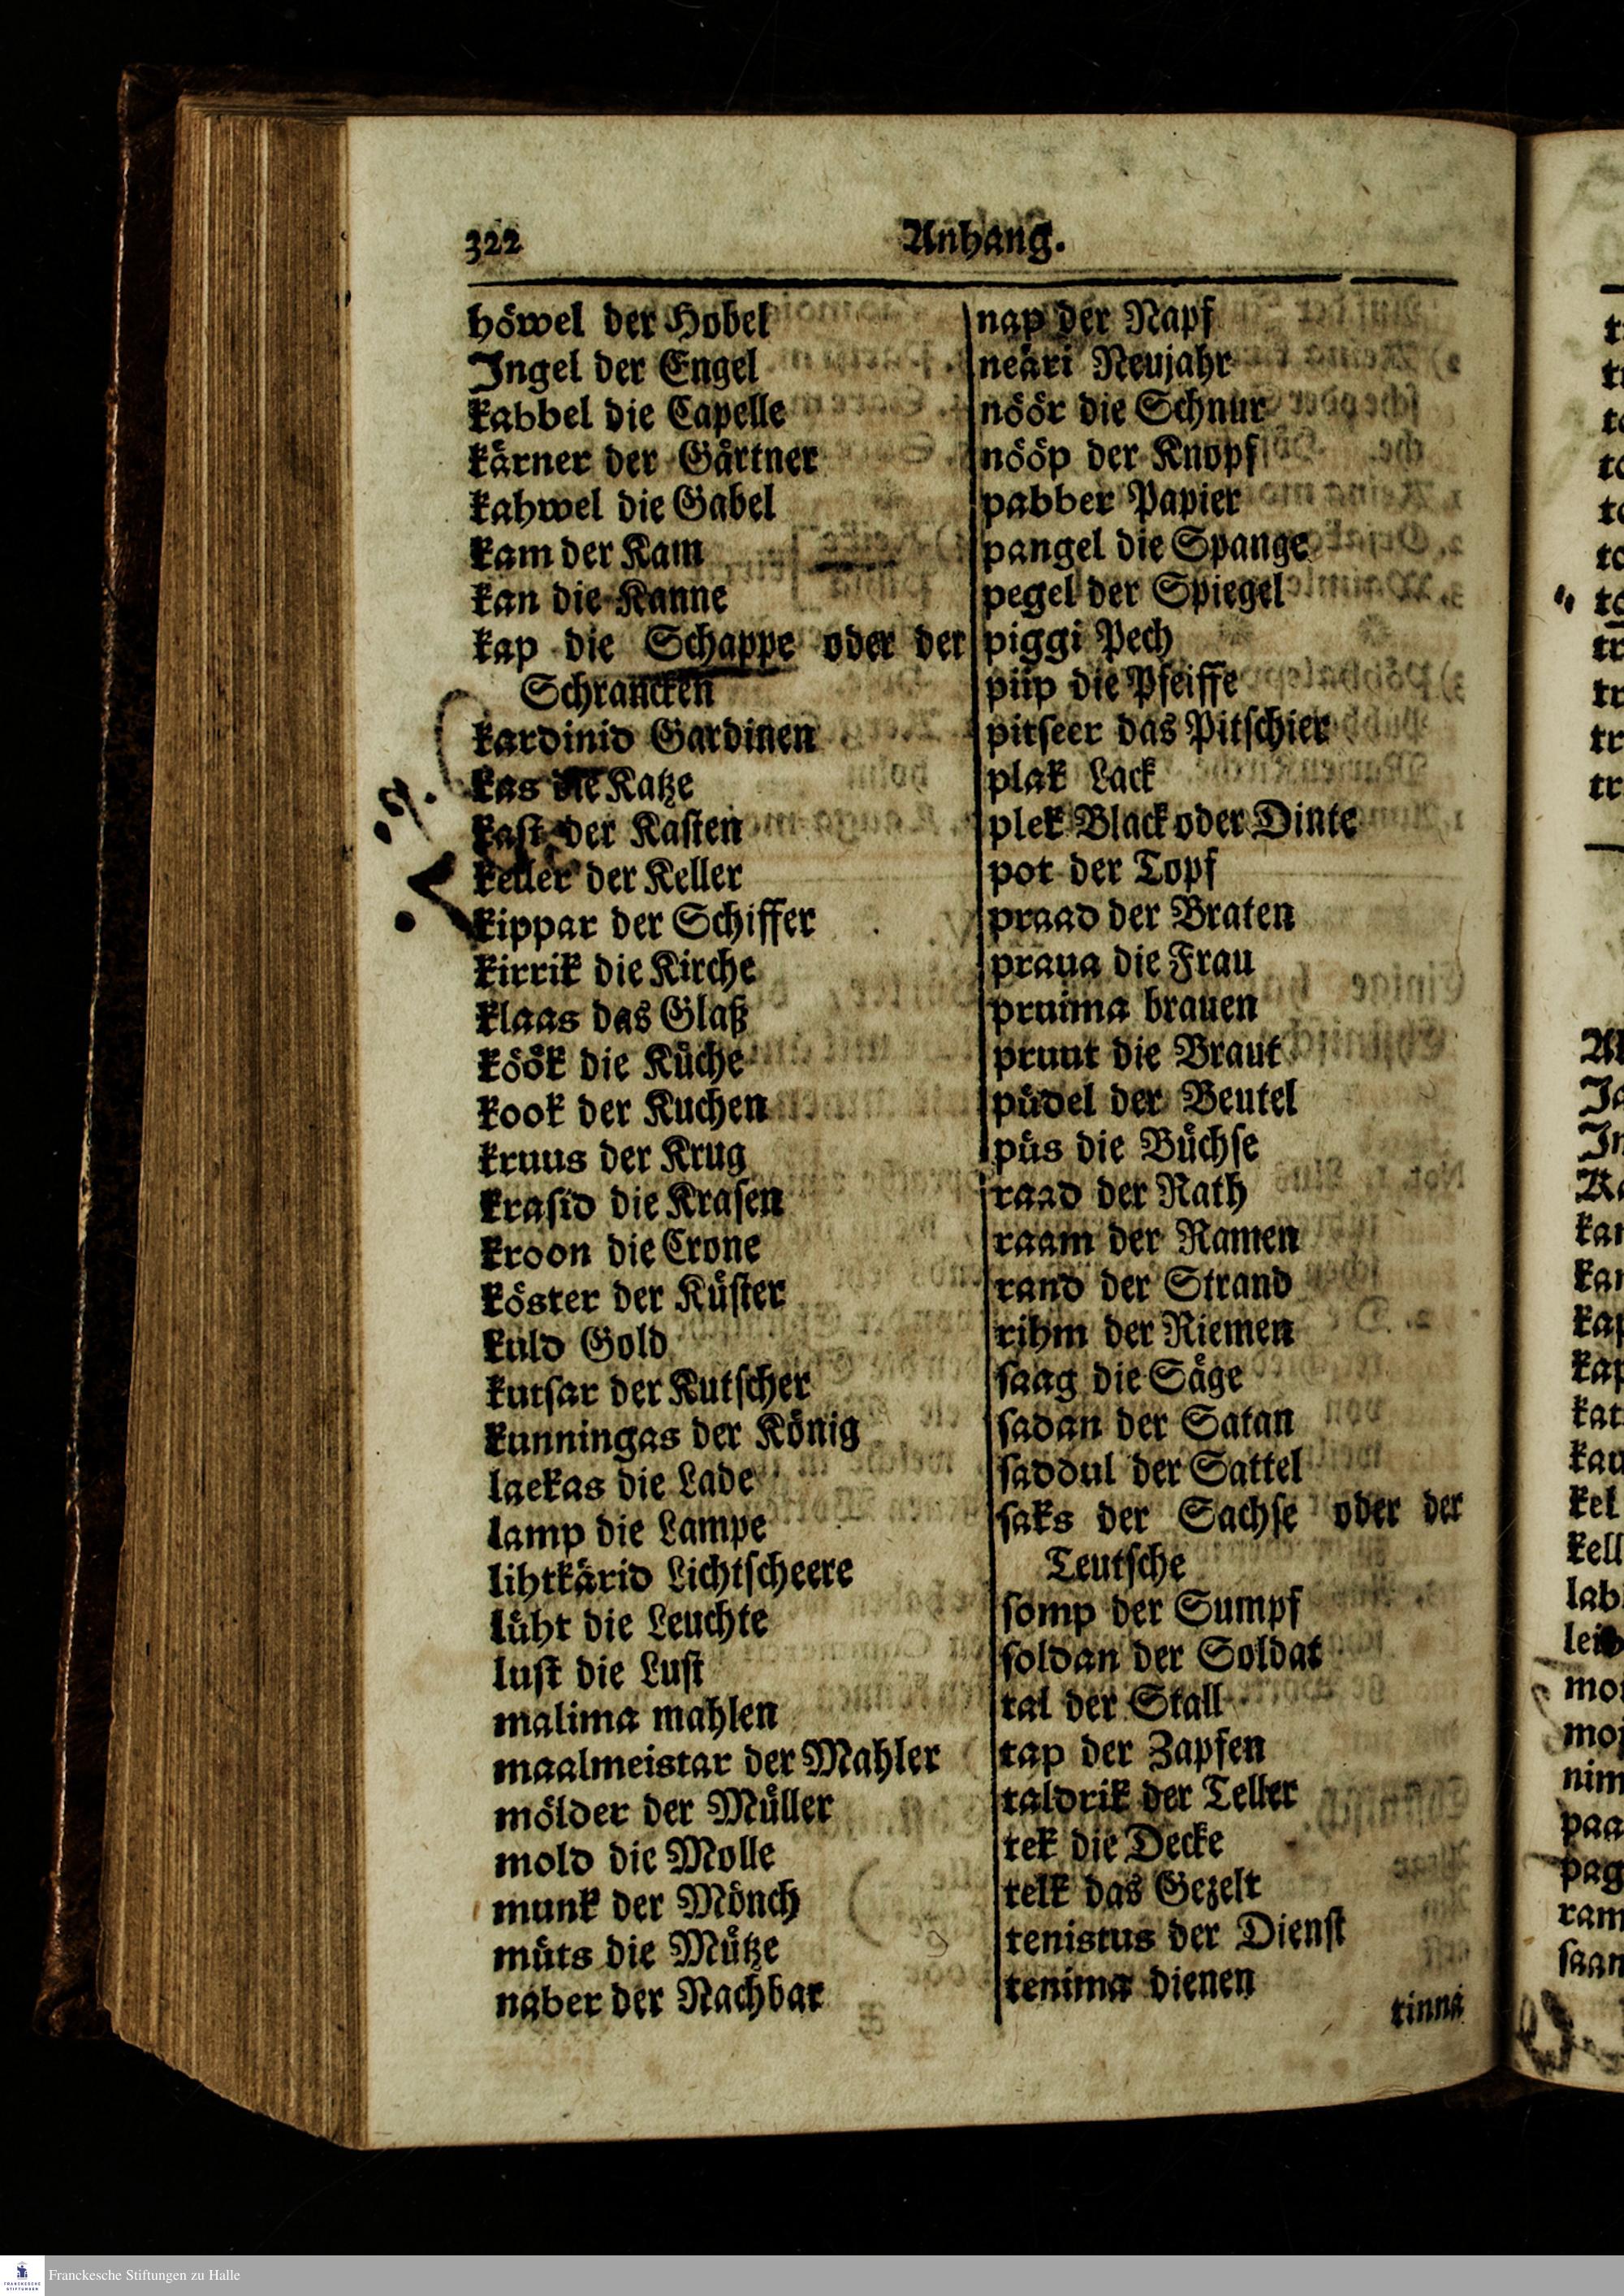 322
Anhang.
höwel der Hobel
Ingel der Engel
kabbel die Capelle
kärner der Gärtner
kahwel die Gabel
kam der Kam
kan die Kanne
kap die Schappe oder der
Schrancken
kardinid Gardinen
kas die Katze
kast der Kasten
keller der Keller
kippar der Schiffer
kirrik die Kirche
klaas das Glaß
köök die Küche
kook der Kuchen
kruus der Krug
krasid die Krasen
kroon die Crone
köster der Küster
kuld Gold
kutsar der Kutscher
kunningas der König
laekas die Lade
lamp die Lampe
lihtkärid Lichtscheere
lüht die Leuchte
lust die Lust
malima mahlen
maalmeistar der Mahler
mölder der Müller
mold die Molle
munk der Mönch
müts die Mütze
naber der Nachbar
nap der Napf
neäri Neujahr
nöör die Schnur
nööp der Knopf
pabber Papier
pangel die Spange
pegel der Spiegel
piggi Pech
piip die Pfeiffe
pitseer das Pitschier
plak Lack
plek Black oder Dinte
pot der Topf
praad der Braten
praua die Frau
pruima brauen
pruut die Braut
püdel der Beutel
püs die Büchse
raad der Rath
raam der Ramen
rand der Strand
rihm der Riemen
saag die Säge
sadan der Satan
saddul der Sattel
saks der Sachse oder der
Teutsche
somp der Sumpf
soldan der Soldat
tal der Stall
tap der Zapfen
taldrik der Teller
tek die Decke
telk das Gezelt
tenistus der Dienst
tenima dienen
tinna
Franckesche Stiftungen zu Halle